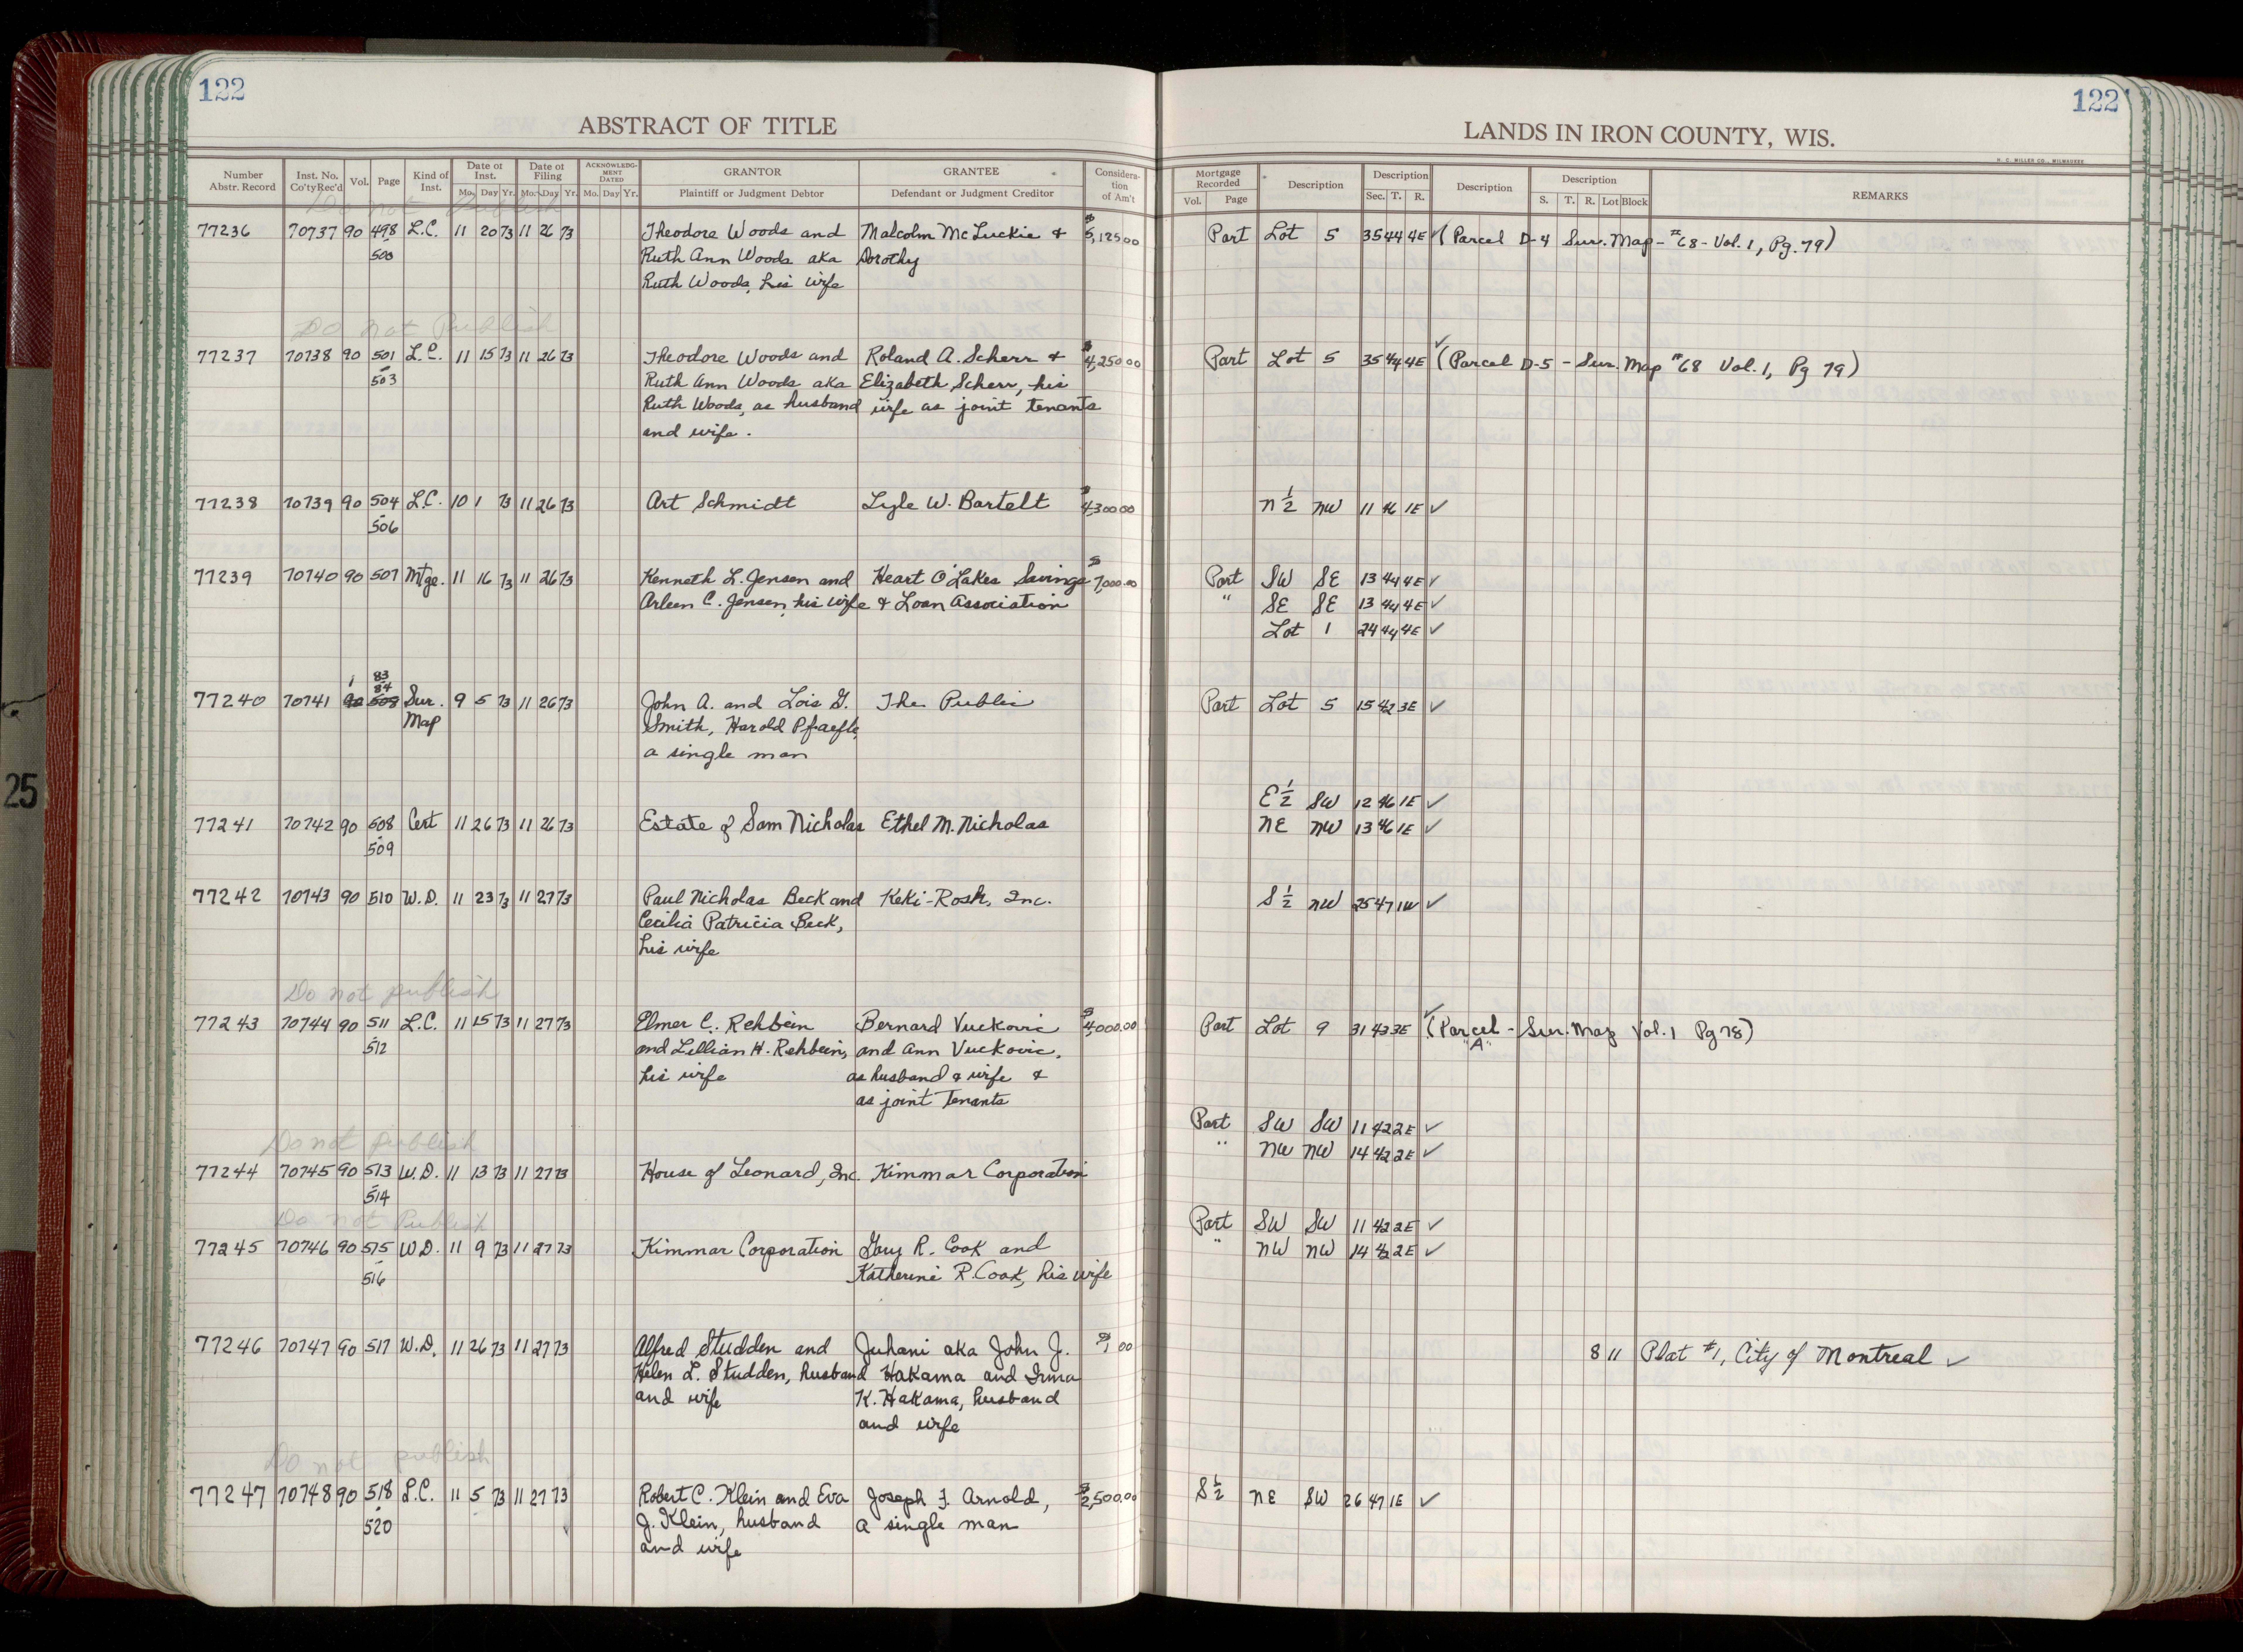 122
122
ABSTRACT OF TITLE
LANDS IN IRON COUNTY, WIS.
H. C. MILLER CO., MILWAUKEE
Number Abstr. Record | Inst. No. Co'ty Rec'd | Vol. | Page | Kind of Inst. | Date of Inst. Mo. Day Yr. | Date of Filing Mo. Day Yr. | ACKNOWLEDG-MENT DATED Mo. Day Yr. | GRANTOR Plaintiff or Judgment Debtor | GRANTEE Defendant or Judgment Creditor | Considera-tion of Am't | Mortgage Recorded Vol. Page | Description | Description Sec. T. R. | Description | Description S. T. R. Lot Block | REMARKS
Do not Publish
77236 70737 90 498 L.C. 11 20 73 11 26 73 Theodore Woods and Malcolm McLuckie & $5,125.00 Part Lot 5 35 44 4E ✓ (Parcel D-4 Sur. Map - #68 - Vol. 1, Pg. 79)
- 500 Ruth Ann Woods aka Dorothy
Ruth Woods, his wife
Do not Publish
77237 70738 90 501 L.C. 11 15 73 11 26 73 Theodore Woods and Roland A. Scherr & $4,250.00 Part Lot 5 35 44 4E ✓ (Parcel D-5 - Sur. Map #68 Vol. 1, Pg 79)
- 503 Ruth Ann Woods aka Elizabeth Scherr, his
Ruth Woods, as husband wife as joint tenants
and wife.
77238 70739 90 504 L.C. 10 1 73 11 26 73 Art Schmidt Lyle W. Bartelt $4,300.00 N 1/2 NW 11 46 1E ✓
- 506
77239 70740 90 507 Mtge. 11 16 73 11 26 73 Kenneth L. Jensen and Heart O'Lakes Savings $7,000.00 Part SW SE 13 44 4E ✓
Arleen C. Jensen, his wife & Loan Association " SE SE 13 44 4E ✓
Lot 1 24 44 4E ✓
1 83
84
77240 70741 90 508 Sur. 9 5 73 11 26 73 John A. and Lois G. The Public Part Lot 5 15 42 3E ✓
Map Smith, Harold Pfraefle,
a single man
E 1/2 SW 12 46 1E ✓
77241 70742 90 508 Cert 11 26 73 11 26 73 Estate of Sam Nicholas Ethel M. Nicholas NE NW 13 46 1E ✓
- 509
77242 70743 90 510 W.D. 11 23 73 11 27 73 Paul Nicholas Beck and Keki-Rosh, Inc. S 1/2 NW 25 47 1W ✓
Cecilia Patricia Beck,
his wife
Do not publish
77243 70744 90 511 L.C. 11 15 73 11 27 73 Elmer C. Rehbein Bernard Vuckovic $4,000.00 Part Lot 9 31 43 3E ✓ (Parcel "A" - Sur. Map Vol. 1 Pg 78)
- 512 and Lillian H. Rehbein, and Ann Vuckovic,
his wife as husband & wife &
as joint Tenants
Part SW SW 11 42 2E ✓
Do not publish " NW NW 14 42 2E ✓
77244 70745 90 513 W.D. 11 13 73 11 27 73 House of Leonard, Inc. Kimmar Corporation
- 514
Do not Publish Part SW SW 11 42 2E ✓
77245 70746 90 515 W.D. 11 9 73 11 27 73 Kimmar Corporation Gary R. Cook and " NW NW 14 42 2E ✓
- 516 Katherine R. Cook, his wife
77246 70747 90 517 W.D. 11 26 73 11 27 73 Alfred Studden and Juhani aka John J. $1.00 8 11 Plat #1, City of Montreal ✓
Helen L. Studden, husband Hakama and Irma
and wife K. Hakama, husband
and wife
Do not publish
77247 70748 90 518 L.C. 11 5 73 11 27 73 Robert C. Klein and Eva Joseph F. Arnold, $2,500.00 S 1/2 NE SW 26 47 1E ✓
- 520 J. Klein, husband a single man
and wife
25